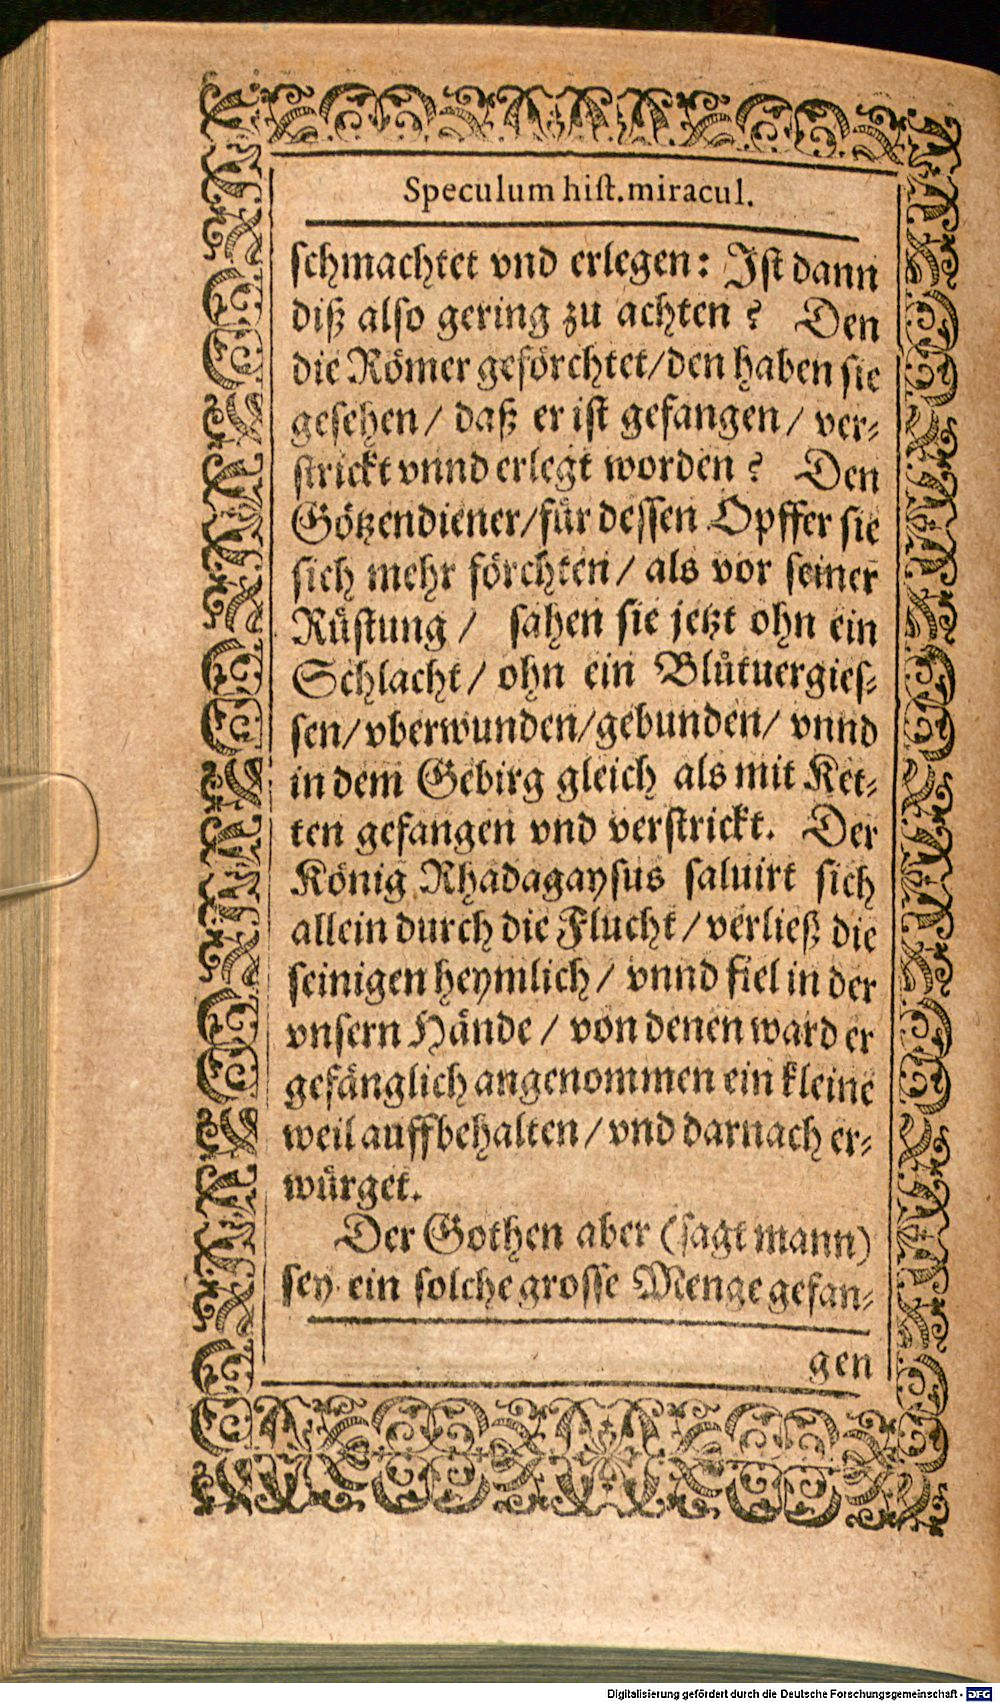 Speculum hiſt.miracul.
ſchmachtet vnd erlegen: Iſt dann
diß alſo gering zu achten? Den
die Römer geförchtet/den haben ſie
geſehen/ daß er iſt gefangen/ ver-
ſtrickt vnnd erlegt worden? Den
Götzendiener/für deſſen Opffer ſie
ſich mehr förchten/ als vor ſeiner
Rüſtung/ ſahen ſie jetzt ohn ein
Schlacht/ ohn ein Blůtuergieſ-
ſen/vberwunden/gebunden/ vnnd
in dem Gebirg gleich als mit Ket-
ten gefangen vnd verſtrickt. Der
König Rhadagayſus ſaluirt ſich
allein durch die Flucht/verließ die
ſeinigen heymlich/ vnnd fiel in der
vnſern Hände/ von denen ward er
gefänglich angenommen ein kleine
weil auffbehalten/vnd darnach er-
würget.
Der Gothen aber (ſagt mann)
ſey ein ſolche groſſe Menge gefan-
gen
Digitalisierung gefördert durch die Deutsche Forschungsgemeinschaft - DFG